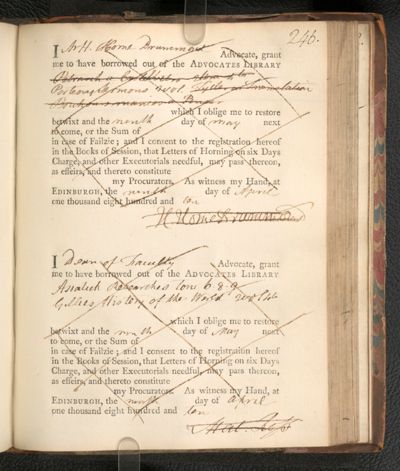 246.
I Mr H. Home Drummond Advocate, grant
me to have borrowed out of the ADVOCATES LIBRARY
Porteous Sermons 2 vol. Tytler on Translation
which I oblige me to restore
betwixt and the ninth day of May next
to come, or the Sum of
in case of Failzie; and I consent to the registration hereof
in the Books of Session, that Letters of Horning on six Days
Charge, and other Executorials needful, may pass thereon,
as effeirs, and thereto constitute
my Procurators. As witness my Hand, at
EDINBURGH, the ninth day of April
one thousand eight hundred and ten
H Home Drummond
I Dean of Faculty Advocate, grant
me to have borrowed out of the ADVOCATES LIBRARY
Asiatick Researches tom 6. 8. 9
Gillies History of the World 2
which I oblige me to restore
betwixt and the ninth day of May next
to come, or the Sum of
in case of Failzie; and I consent to the registration hereof
in the Books of Session, that Letters of Horning on six Days
Charge, and other Executorials needful, may pass thereon,
as effeirs, and thereto constitute
my Procurators. As witness my Hand, at
EDINBURGH, the ninth day of April
one thousand eight hundred and ten